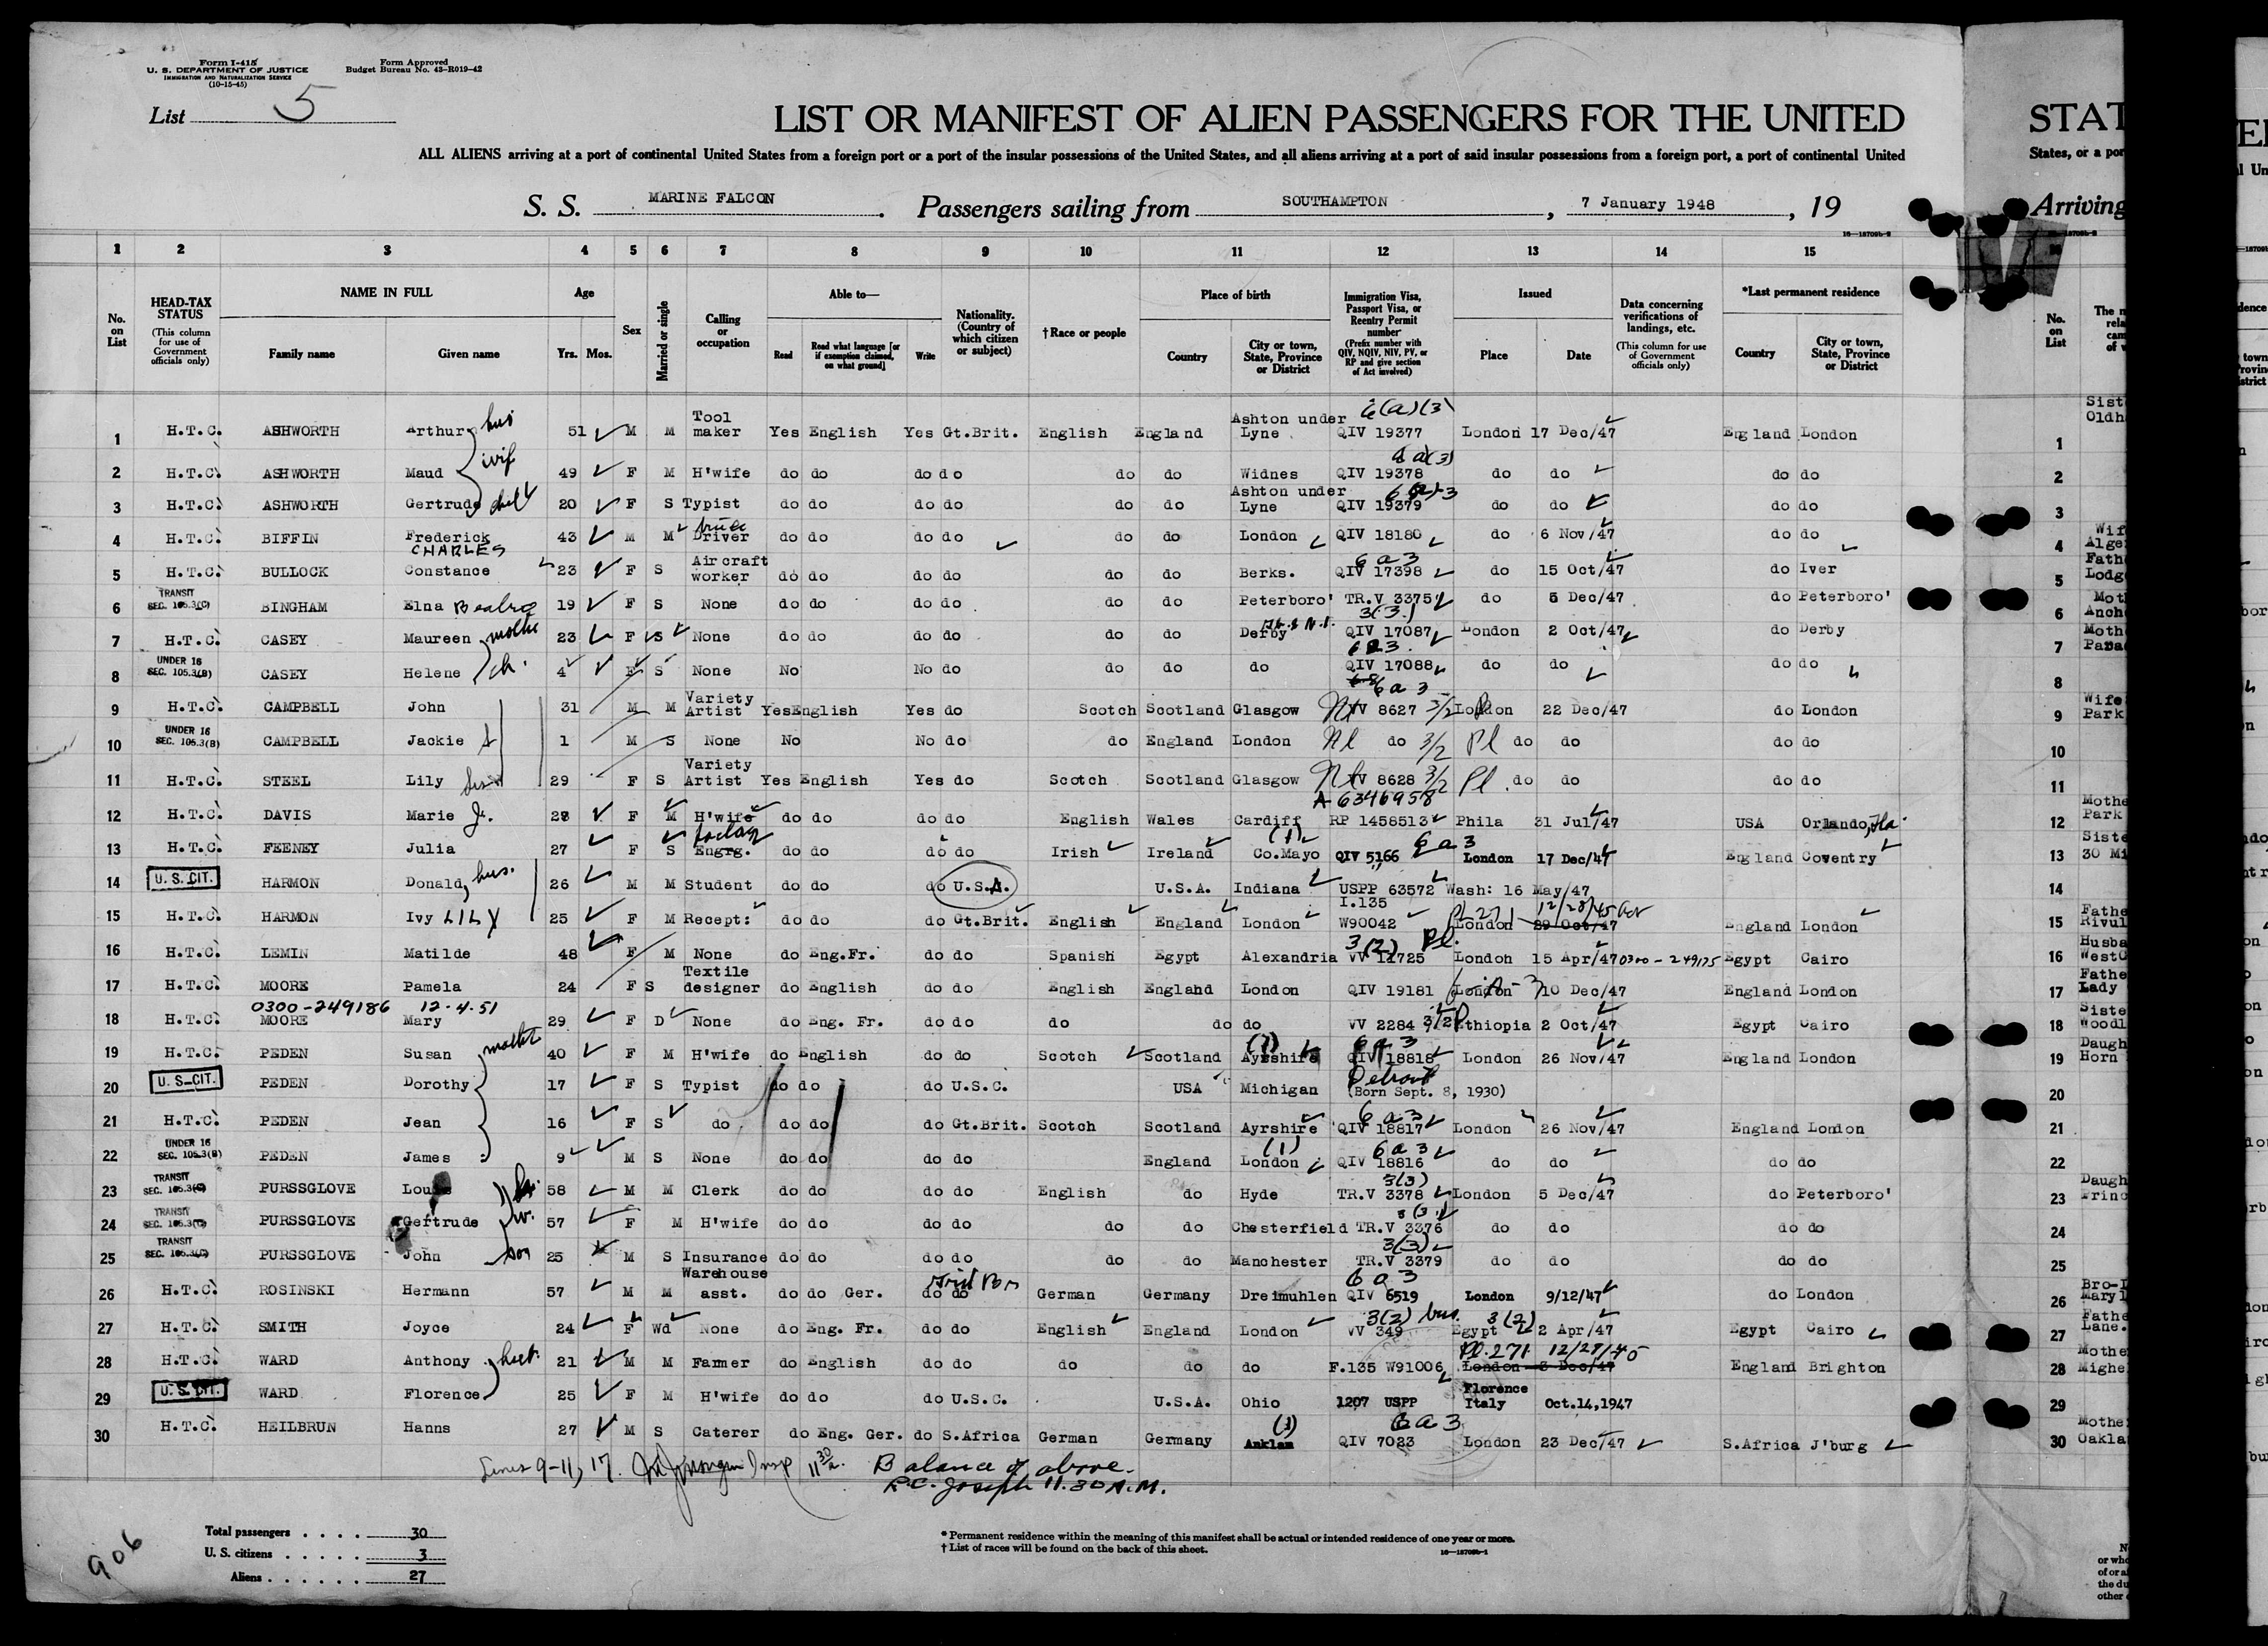 Form I-415
U. S. DEPARTMENT OF JUSTICE
IMMIGRATION AND NATURALIZATION SERVICE
(10-15-45)
Form Approved
Budget Bureau No. 43-R019-42
List 5
LIST OR MANIFEST OF ALIEN PASSENGERS FOR THE UNITED
ALL ALIENS arriving at a port of continental United States from a foreign port or a port of the insular possessions of the United States, and all aliens arriving at a port of said insular possessions from a foreign port, a port of continental United
S. S. MARINE FALCON. Passengers sailing from SOUTHAMPTON, 7 January 1948, 19
16—18709b-2
1 2 3 4 5 6 7 8 9 10 11 12 13 14 15
No. on List
HEAD-TAX STATUS (This column for use of Government officials only)
NAME IN FULL Family name Given name
Age Yrs. Mos.
Sex
Married or single
Calling or occupation
Able to— Read Read what language [or if exemption claimed, on what ground] Write
Nationality. (Country of which citizen or subject)
†Race or people
Place of birth Country City or town, State, Province or District
Immigration Visa, Passport Visa, or Reentry Permit number (Prefix number with QIV, NQIV, NIV, PV, or RP and give section of Act involved)
Issued Place Date
Data concerning verifications of landings, etc. (This column for use of Government officials only)
*Last permanent residence Country City or town, State, Province or District
1 H.T.C. ASHWORTH Arthur hus 51 M M Tool maker Yes English Yes Gt.Brit. English England Ashton under Lyne 6(a)(3) QIV 19377 London 17 Dec/47 England London
2 H.T.C. ASHWORTH Maud wif 49 F M H'wife do do do do do do Widnes 6a(3) QIV 19378 do do do do
3 H.T.C. ASHWORTH Gertrude 20 F S Typist do do do do do do Ashton under Lyne 6(a)-3 QIV 19379 do do do do
4 H.T.C. BIFFIN Frederick CHARLES 43 M M Driver do do do do do do London QIV 18180 do 6 Nov/47 do do
5 H.T.C. BULLOCK Constance 23 F S Aircraft worker do do do do do do Berks. 6a3 QIV 17398 do 15 Oct/47 do Iver
6 TRANSIT SEC. 105.3(C) BINGHAM Elna 19 F S None do do do do do do Peterboro' TR.V 3375 do 5 Dec/47 do Peterboro'
7 H.T.C. CASEY Maureen 23 F S None do do do do do do Derby 3(3) QIV 17087 London 2 Oct/47 do Derby
8 UNDER 16 SEC. 105.3(B) CASEY Helene ch. 4 F S None No No do do do do QIV 17088 do do do do
9 H.T.C. CAMPBELL John 31 M M Variety Artist Yes English Yes do Scotch Scotland Glasgow 6a3 VV 8627 3/2 London 22 Dec/47 do London
10 UNDER 16 SEC. 105.3(B) CAMPBELL Jackie 1 M S None No No do do England London do 3/2 Pl do do do do
11 H.T.C. STEEL Lily 29 F S Variety Artist Yes English Yes do Scotch Scotland Glasgow VV 8628 3/2 Pl. do do do do
12 H.T.C. DAVIS Marie J. 28 F M H'wife do do do do English Wales Cardiff A-6346958 RP 1458513 Phila 31 Jul/47 USA Orlando, Fla.
13 H.T.C. FEENEY Julia 27 F S Engrg. do do do do Irish Ireland (1) Co.Mayo QIV 5166 6a3 London 17 Dec/47 England Coventry
14 U. S. CIT. HARMON Donald, hus. 26 M M Student do do do U.S.A. U.S.A. Indiana USPP 63572 Wash: 16 May/47
15 H.T.C. HARMON Ivy LILY 25 F M Recept: do do do Gt.Brit. English England London I.135 W90042 London 29 Oct/47 PL 271 12/28/45 England London
16 H.T.C. LEMIN Matilde 48 F M None do Eng.Fr. do do Spanish Egypt Alexandria 3(2) Pl. VV 11725 London 15 Apr/47 0300-249175 Egypt Cairo
17 H.T.C. MOORE Pamela 24 F S Textile designer do English do do English England London QIV 19181 London 10 Dec/47 England London
0300-249186 12-4-51
18 H.T.C. MOORE Mary 29 F D None do Eng. Fr. do do do do do VV 2284 3/2 Ethiopia 2 Oct/47 Egypt Cairo
19 H.T.C. PEDEN Susan mother 40 F M H'wife do English do do Scotch Scotland (1) Ayrshire 6a3 QIV 18818 London 26 Nov/47 England London
20 U. S. CIT. PEDEN Dorothy 17 F S Typist do do do U.S.C. USA Michigan Detroit (Born Sept. 8, 1930)
21 H.T.C. PEDEN Jean 16 F S do do do do Gt.Brit. Scotch Scotland Ayrshire 6a3 QIV 18817 London 26 Nov/47 England London
22 UNDER 16 SEC. 105.3(B) PEDEN James 9 M S None do do do do England (1) London 6a3 QIV 18816 do do do do
23 TRANSIT SEC. 105.3(C) PURSSGLOVE Louis 58 M M Clerk do do do do English do Hyde 3(3) TR.V 3378 London 5 Dec/47 do Peterboro'
24 TRANSIT SEC. 105.3(C) PURSSGLOVE Gertrude w. 57 F M H'wife do do do do do do Chesterfield 3(3) TR.V 3376 do do do do
25 TRANSIT SEC. 105.3(C) PURSSGLOVE John son 25 M S Insurance do do do do do do Manchester 3(3) TR.V 3379 do do do do
26 H.T.C. ROSINSKI Hermann 57 M M Warehouse asst. do do Ger. do do German Germany Dreimuhlen 6a3 QIV 6519 London 9/12/47 do London
27 H.T.C. SMITH Joyce 24 F Wd None do Eng. Fr. do do English England London 3(2) bus. VV 349 3(2) Egypt 2 Apr/47 Egypt Cairo
28 H.T.C. WARD Anthony 21 M M Farmer do English do do do do do F.135 W91006 Pl. 271 12/28/45 London 3 Dec/47 England Brighton
29 U. S. CIT. WARD Florence 25 F M H'wife do do do U.S.C. U.S.A. Ohio 1207 USPP Florence Italy Oct.14,1947
30 H.T.C. HEILBRUN Hanns 27 M S Caterer do Eng. Ger. do S.Africa German Germany (1) Anklam 6a3 QIV 7023 London 23 Dec/47 S.Africa J'burg
Lines 9-11, 17. Insp 11 30 Balance of above.
R.C. Joseph 11.30 A.M.
Total passengers . . . . 30
U. S. citizens . . . . . 3
Aliens . . . . . . 27
906
* Permanent residence within the meaning of this manifest shall be actual or intended residence of one year or more.
† List of races will be found on the back of this sheet.
16—18709b-1
STAT
States, or a por
Arriving
No. on List
The n
rela
1
2
3
4
5
6
7
8
9
10
11
12
13
14
15
16
17
18
19
20
21
22
23
24
25
26
27
28
29
30